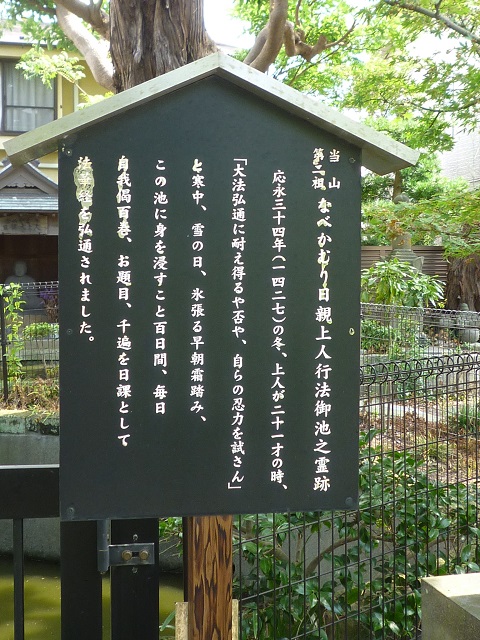 当山
第二祖 なべかむり日親上人行法御池之霊跡
応永三十四年(一四二七)の冬、上人が二十一才の時、
「大法弘通に耐え得るや否や、自らの忍力を試さん」
と寒中、雪の日、氷張る早朝霜踏み、
この池に身を浸すこと百日間、毎日
自我偈百巻、お題目、千遍を日課として
法を弘通されました。